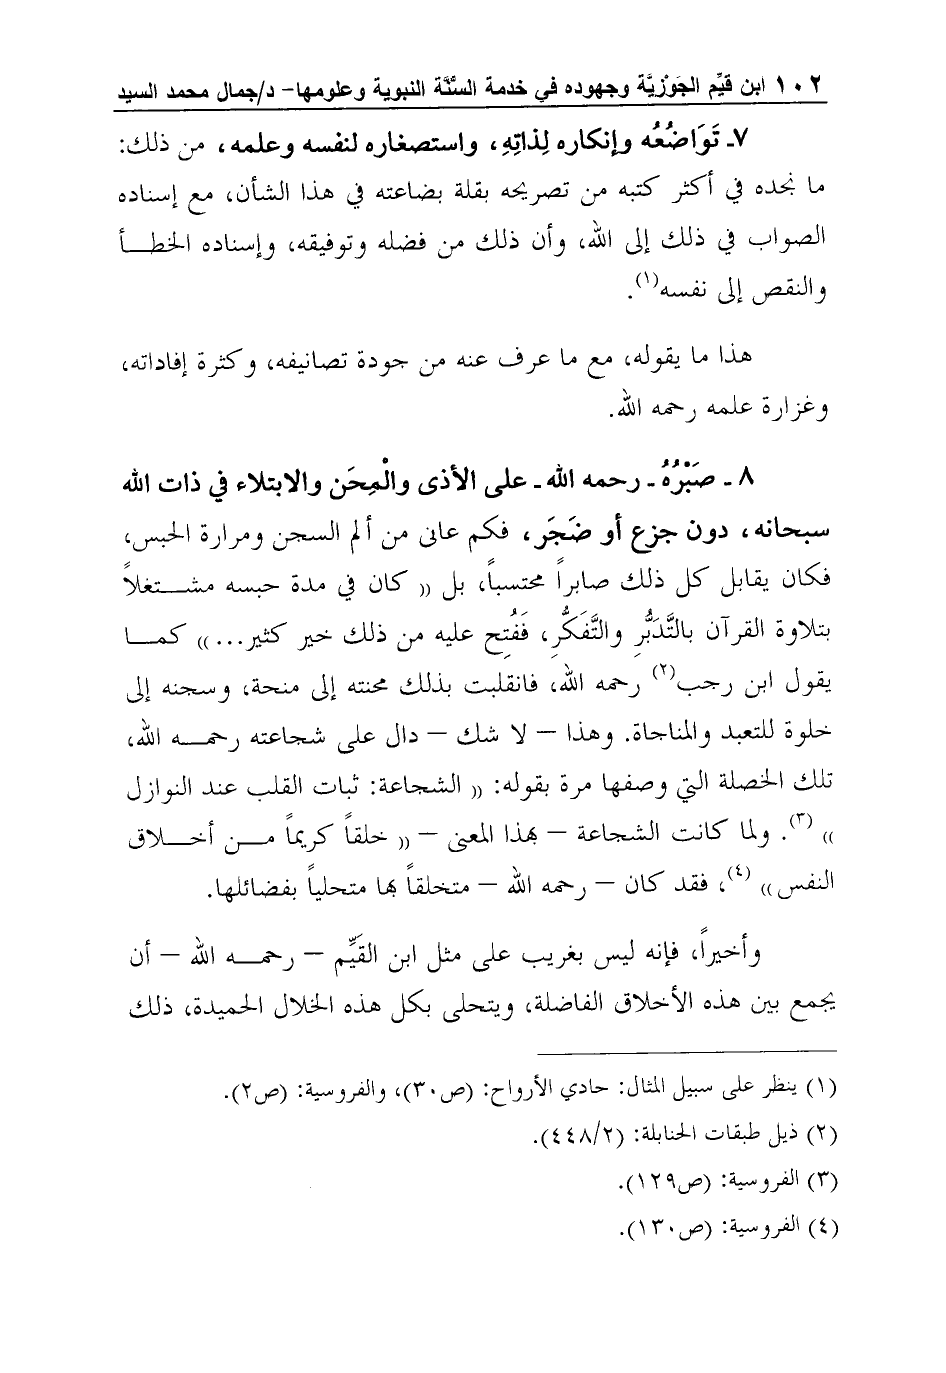 ١٠٢ ابن قيِّم الجَوْزيَّة وجهوده في خدمة السُّنَّة النبوية وعلومها- د/جمال محمد السيد
٧ـ تَوَاضُعُه وإنكاره لِذاتِهِ، واستصغاره لنفسه وعلمه، من ذلك:
ما نجده في أكثر كتبه من تصريحه بقلة بضاعته في هذا الشأن، مع إسناده
الصواب في ذلك إلى الله، وأن ذلك من فضله وتوفيقه، وإسناده الخطـــأ
والنقص إلى نفسه(١).
هذا ما يقوله، مع ما عرف عنه من جودة تصانيفه، وكثرة إفاداته،
وغزارة علمه رحمه الله.
٨ ـ صَبْرُهُ ـ رحمه الله ـ على الأذى والْمِحَن والابتلاء في ذات الله
سبحانه، دون جزع أو ضَجَر، فكم عانى من ألم السجن ومرارة الحبس،
فكان يقابل كل ذلك صابراً محتسباً، بل (( كان في مدة حبسه مشـــتغلاً
بتلاوة القرآن بالتَّدَبُّرِ والتَّفَكُّرِ، فَفُتِح عليه من ذلك خير كثير... )) كمـــا
يقول ابن رجب(٢) رحمه الله، فانقلبت بذلك محنته إلى منحة، وسجنه إلى
خلوة للتعبد والمناجاة. وهذا – لا شك – دال على شجاعته رحمـــه الله،
تلك الخصلة التي وصفها مرة بقوله: (( الشجاعة: ثبات القلب عند النوازل
))(٣). ولما كانت الشجاعة – بهذا المعنى – (( خلقاً كريماً مـــن أخـــلاق
النفس ))(٤)، فقد كان – رحمه الله – متخلقاً بها متحلياً بفضائلها.
وأخيراً، فإنه ليس بغريب على مثل ابن القَيِّم – رحمـــه الله – أن
يجمع بين هذه الأخلاق الفاضلة، ويتحلى بكل هذه الخلال الحميدة، ذلك
(١) ينظر على سبيل المثال: حادي الأرواح: (ص٣٠)، والفروسية: (ص٢).
(٢) ذيل طبقات الحنابلة: (٤٤٨/٢).
(٣) الفروسية: (ص١٢٩).
(٤) الفروسية: (ص١٣٠).